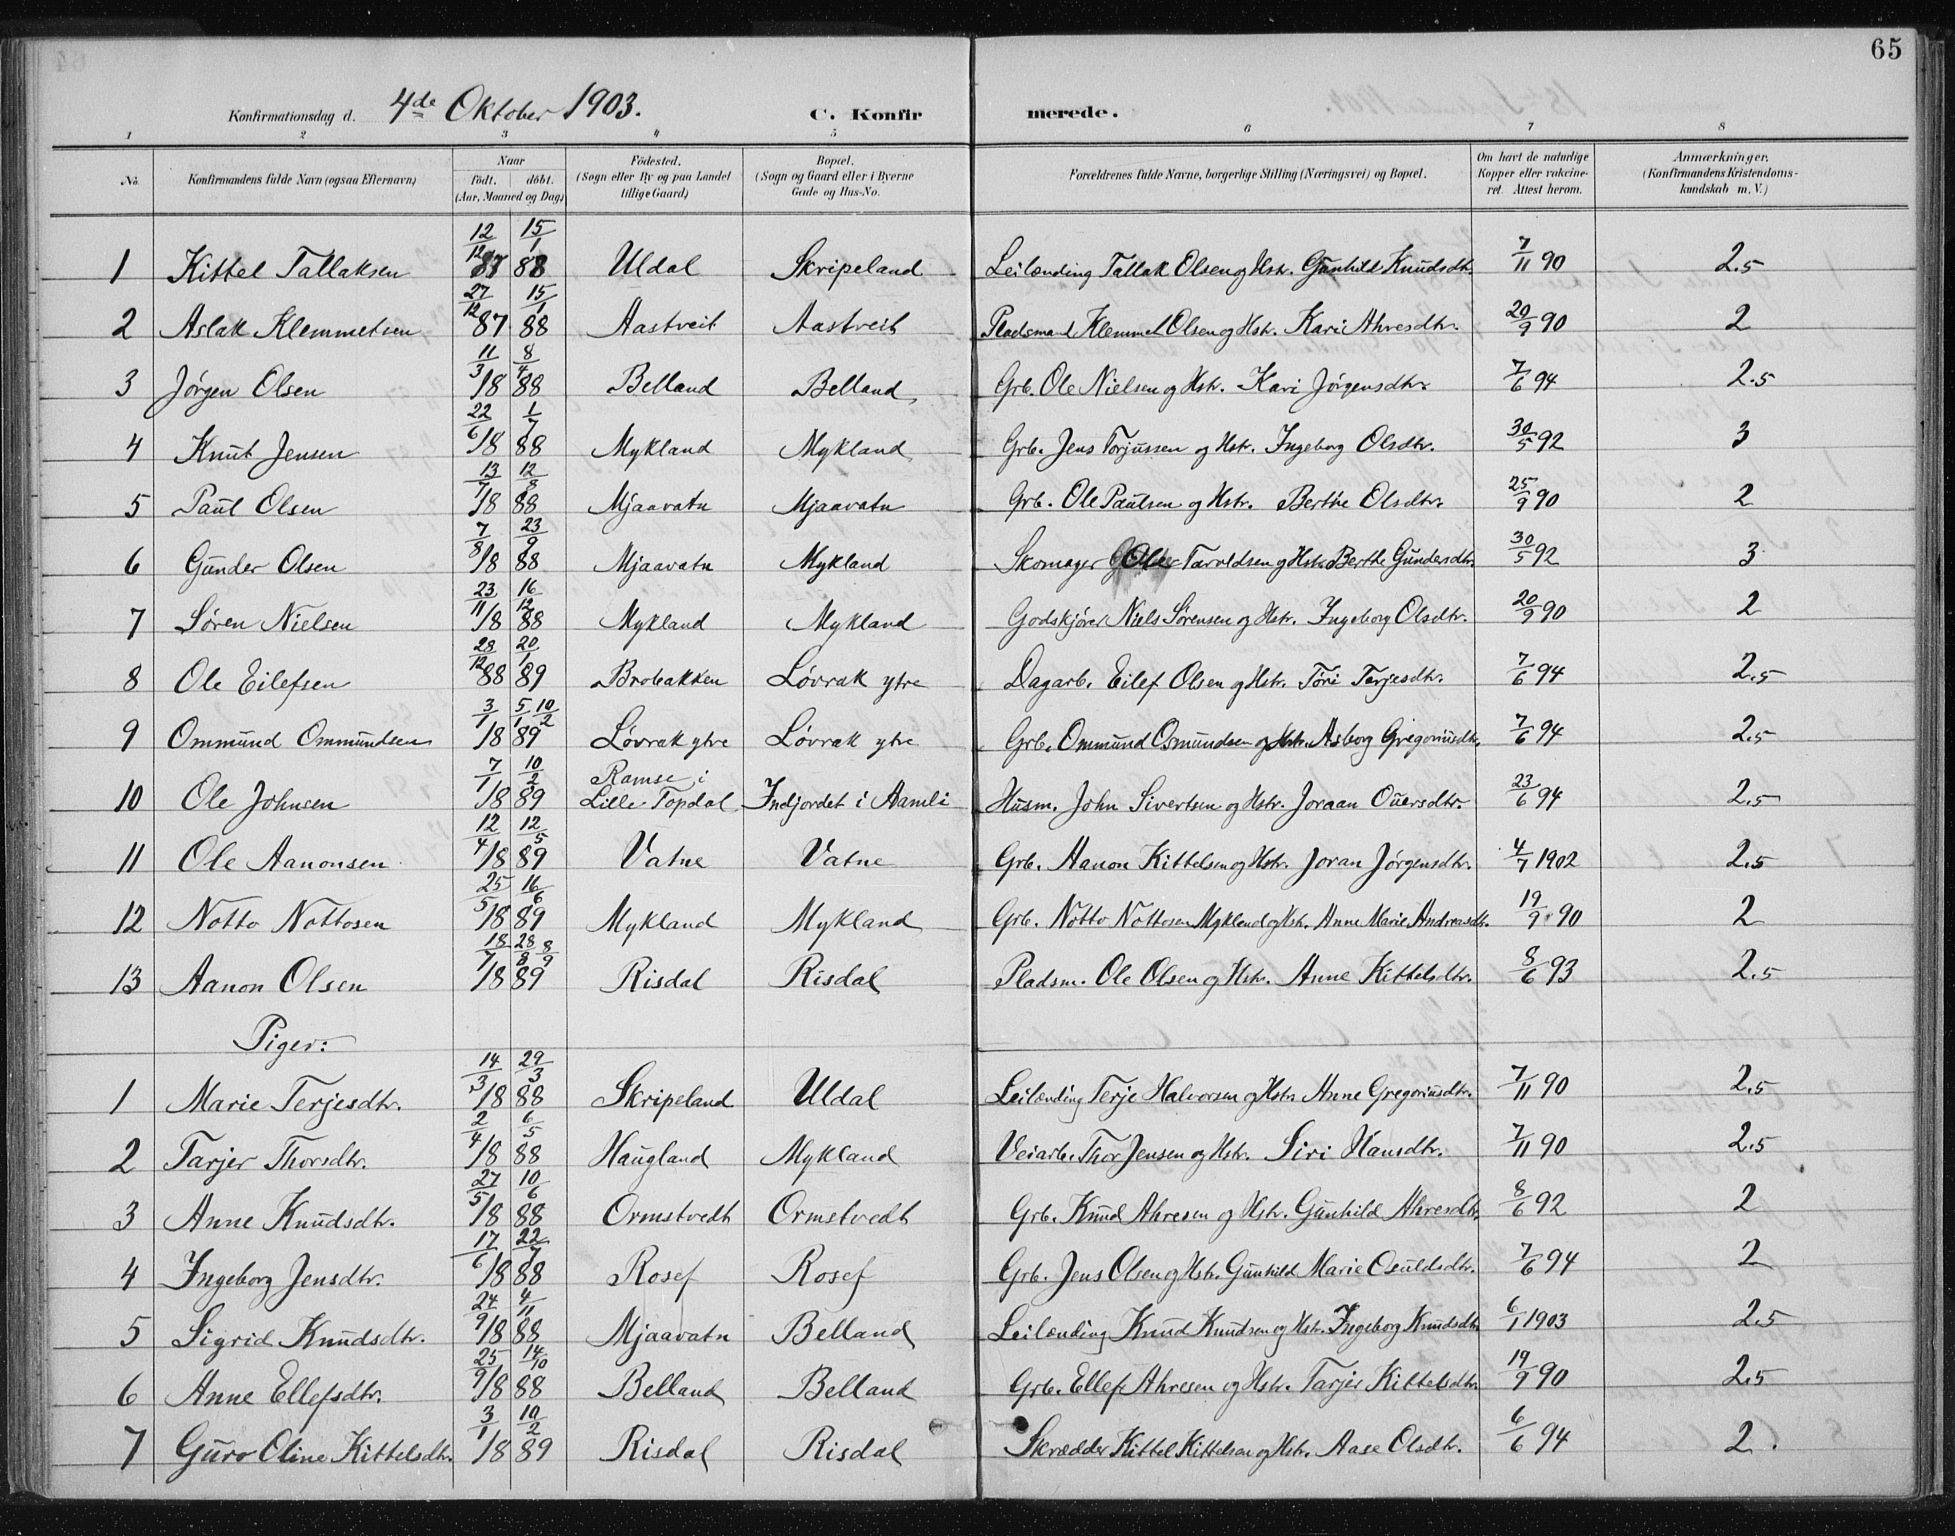 65
Konfirmationsdag d. 4de Oktober 1903. C. Konfir merede.
1 2 3 4 5 6 7 8
No. Konfirmandens fulde Navn (ogsaa Efternavn) Naar født. døbt. (Aar, Maaned og Dag) Fødested. (Sogn eller By og paa Landet tillige Gaard) Bopæl. (Sogn og Gaard eller i Byerne Gade og Hus-No. Forældrenes fulde Navne, borgerlige Stilling (Næringsvei) og Bopæl. Om havt de naturlige Kopper eller vakcineret. Attest herom. Anmærkninger. (Konfirmandens Kristendomskundskab m. V.)
1 Kittel Tallaksen 12/12 87 15/1 88 Uldal Skripeland Leilænding Tallak Olsen og Hstr. Gunhild Knudsdtr. 7/11 90 2.5
2 Aslak Klemmetsen 27/12 87 15/1 88 Aastveit Aastveit Pladsmand Klemmet Olsen og Hstr. Kari Ahresdtr. 20/9 90 2
3 Jørgen Olsen 11/3 18 8/4 88 Belland Belland Grb. Ole Nielsen og Hstr. Kari Jørgensdtr. 7/6 94 2.5
4 Knut Jensen 22/6 18 1/7 88 Mykland Mykland Grb. Jens Torjussen og Hstr. Ingeborg Olsdtr. 30/5 92 3
5 Paul Olsen 13/7 18 12/8 88 Mjaavatn Mjaavatn Grb. Ole Paulsen og Hstr. Berthe Olsdtr. 25/9 90 2
6 Gunder Olsen 7/8 18 23/9 88 Mjaavatn Mykland Skomager Ole Tarvldsen og Hstr. Berthe Gundersdtr. 30/5 92 3
7 Søren Nielsen 23/11 18 16/12 88 Mykland Mykland Godskjører Niels Sørensen og Hstr. Ingeborg Olsdtr. 20/9 90 2
8 Ole Eilefsen 28/12 88 20/1 89 Brobakken Løvrak ytre Dagarb. Eilef Olsen og Hstr. Tøri Terjesdtr. 7/6 94 2.5
9 Ommund Ommundsen 3/1 18 5/1 10/2 89 Løvrak ytre Løvrak ytre Grb. Ommund Osmundsen og Hstr. Asborg Gregoriusdtr. 7/6 94 2.5
10 Ole Johnsen 7/1 18 10/2 89 Ramse i Lille Topdal Indjordet i Aamli Husm. John Sivertsen og Hstr. Joraan Ouersdtr. 23/6 94 2.5
11 Ole Aanonsen 12/4 18 12/5 89 Vatne Vatne Grb. Aanon Kittelsen og Hstr. Joran Jørgensdtr. 4/7 1902 2.5
12 Notto Nottosen 25/5 18 16/6 89 Mykland Mykland Grb. Notto Nottosen Mykland og Hstr. Anne Marie Andreasdtr. 19/9 90 2
13 Aanon Olsen 18/7 18 28/8 8/9 89 Risdal Risdal Pladsm. Ole Olsen og Hstr. Anne Kittelsdtr. 8/6 93 2.5
Piger:
1 Marie Terjesdtr. 14/3 18 29/3 88 Skripeland Uldal Leilænding Terje Halvorsen og Hstr. Anne Gregoriusdtr. 7/11 90 2.5
2 Tarjer Thorsdtr. 2/4 18 6/5 88 Haugland Mykland Veiarb. Thor Jensen og Hstr. Siri Hansdtr. 7/11 90 2.5
3 Anne Knudsdtr. 27/5 18 10/6 88 Ormstvedt Ormstvedt Grb. Knud Ahresen og Hstr. Gunhild Ahresdtr. 8/6 92 2
4 Ingeborg Jensdtr. 17/6 18 22/7 88 Rosef Rosef Grb. Jens Olsen og Hstr. Gunhild Marie Osuldsdtr. 7/6 94 2
5 Sigrid Knudsdtr. 24/9 18 4/11 88 Mjaavatn Belland Leilænding Knud Knudsen og Hstr. Ingeborg Knudsdtr. 6/1 1903 2.5
6 Anne Ellefsdtr. 25/9 18 14/10 88 Belland Belland Grb. Ellef Ahresen og Hstr. Tarjer Kittelsdtr. 19/9 90 2.5
7 Guro Oline Kittelsdtr. 3/1 18 10/2 89 Risdal Risdal Skrædder Kittel Kittelsen og Hstr. Aase Olsdtr. 6/6 94 2.